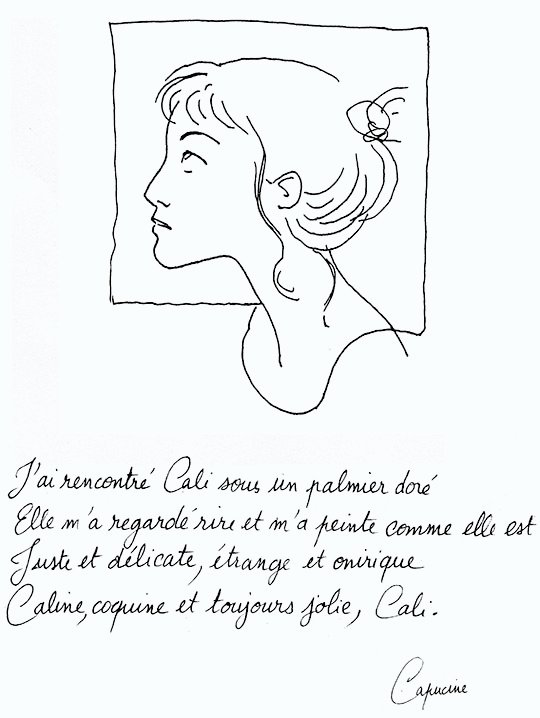 J'ai rencontré Cali sous un palmier doré
Elle m'a regardé rire et m'a peinte comme elle est
Juste et délicate, étrange et onirique
Caline, coquine et toujours jolie, Cali.
Capucine